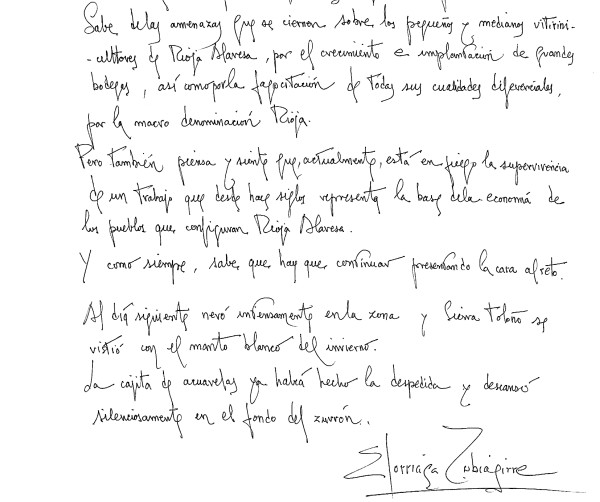 Sabe de las amenazas que se ciernen sobre los pequeños y medianos vitivini-
-cultores de Rioja Alavesa, por el crecimiento e implantación de grandes
bodegas, así como por la fagocitación de todas sus cualidades diferenciales,
por la macro denominación Rioja.
Pero también piensa y siente que, actualmente, está en juego la supervivencia
de un trabajo que desde hace siglos representa la base de la economía de
los pueblos que configuran Rioja Alavesa.
Y como siempre, sabe que hay que continuar presentando la cara al reto.
Al día siguiente nevó intensamente en la zona y Sierra Toloño se
vistió con el manto blanco del invierno.
La cajita de acuarelas ya había hecho la despedida y descansó
silenciosamente en el fondo del zurrón..
Elorriaga Zubiaguirre